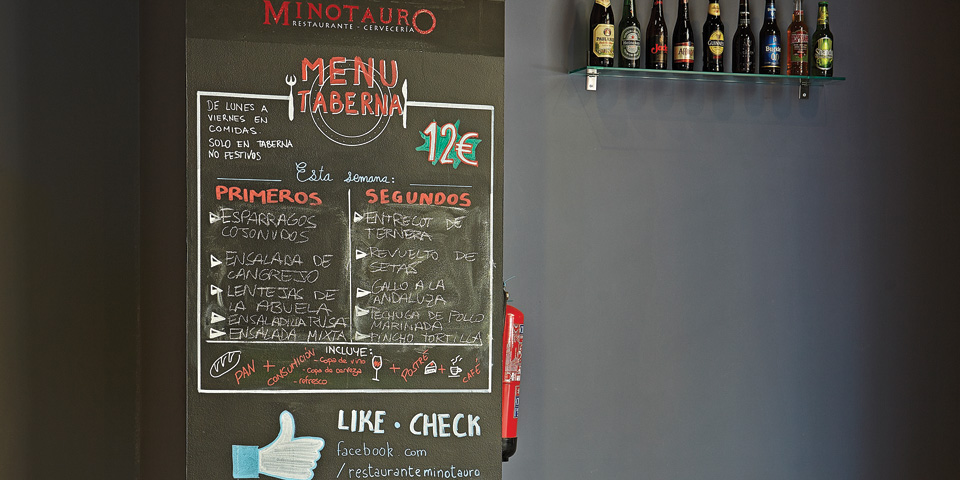 MINOTAURO
RESTAURANTE - CERVECERÍA
MENU
TABERNA
DE LUNES A
VIERNES EN
COMIDAS
SOLO EN TABERNA
NO FESTIVOS
12€
Esta semana:
PRIMEROS
ESPARRAGOS
COJONUDOS
ENSALADA DE
CANGREJO
LENTEJAS DE
LA ABUELA
ENSALADILLA RUSA
ENSALADA MIXTA
SEGUNDOS
ENTRECOT DE
TERNERA
REVUELTO DE
SETAS
GALLO A LA
ANDALUZA
PECHUGA DE POLLO
MARINADA
PINCHO TORTILLA
INCLUYE:
PAN + CONSUMICIÓN
- Copa de vino
- Copa de cerveza
- refresco
+ POSTRE + CAFÉ
LIKE · CHECK
facebook com
/restauranteminotauro